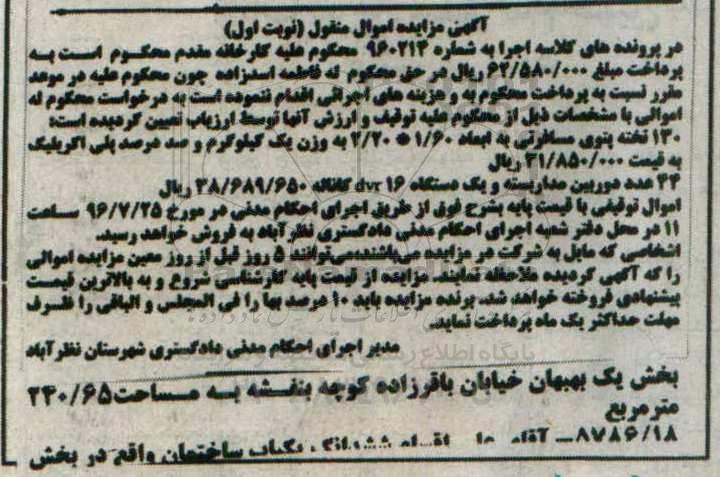 آگهی مزایده اموال منقول (نوبت اول)
در پرونده های کلاسه اجرا به شماره ۹۶۰۲۱۴ محکوم علیه کارخانه مقدم محکوم است به
پرداخت مبلغ ۶۲/۵۸۰/۰۰۰ ریال در حق محکوم له فاطمه اسدزاده چون محکوم علیه در موعد
مقرر نسبت به پرداخت محکوم به و هزینه های اجرائی اقدام ننموده است به درخواست محکوم له
اموالی با مشخصات ذیل از محکوم علیه توقیف و ارزش آنها توسط ارزیاب تعیین گردیده است:
۱۳۰ تخته پتوی مسافرتی به ابعاد ۱/۶۰ * ۲/۲۰ به وزن یک کیلوگرم و صد درصد پلی اکریلیک
به قیمت ۳۱/۸۵۰/۰۰۰ ریال
۳۴ عدد دوربین مداربسته و یک دستگاه dvr ۱۶ کاناله ۳۸/۶۸۹/۶۵۰ ریال
اموال توقیفی با قیمت پایه بشرح فوق از طریق اجرای احکام مدنی در مورخ ۹۶/۷/۲۵ ساعت
۱۱ در محل دفتر شعبه اجرای احکام مدنی دادگستری نظرآباد به فروش خواهد رسید.
اشخاصی که مایل به شرکت در مزایده می‌باشند،می‌توانند ۵ روز قبل از روز معین مزایده اموالی
را که آگهی گردیده ملاحظه نمایند. مزایده از قیمت پایه کارشناسی شروع و به بالاترین قیمت
پیشنهادی فروخته خواهد شد. برنده مزایده باید ۱۰ درصد بها را فی المجلس و الباقی را ظرف
مهلت حداکثر یک ماه پرداخت نماید.
مدیر اجرای احکام مدنی دادگستری شهرستان نظرآباد
بخش یک بهبهان خیابان باقرزاده کوچه بنفشه به مساحت ۲۳۰/۶۵
مترمربع
۸۷۸۶/۱۸ـ آقای ششدانگ یکباب ساختمان واقع در بخش